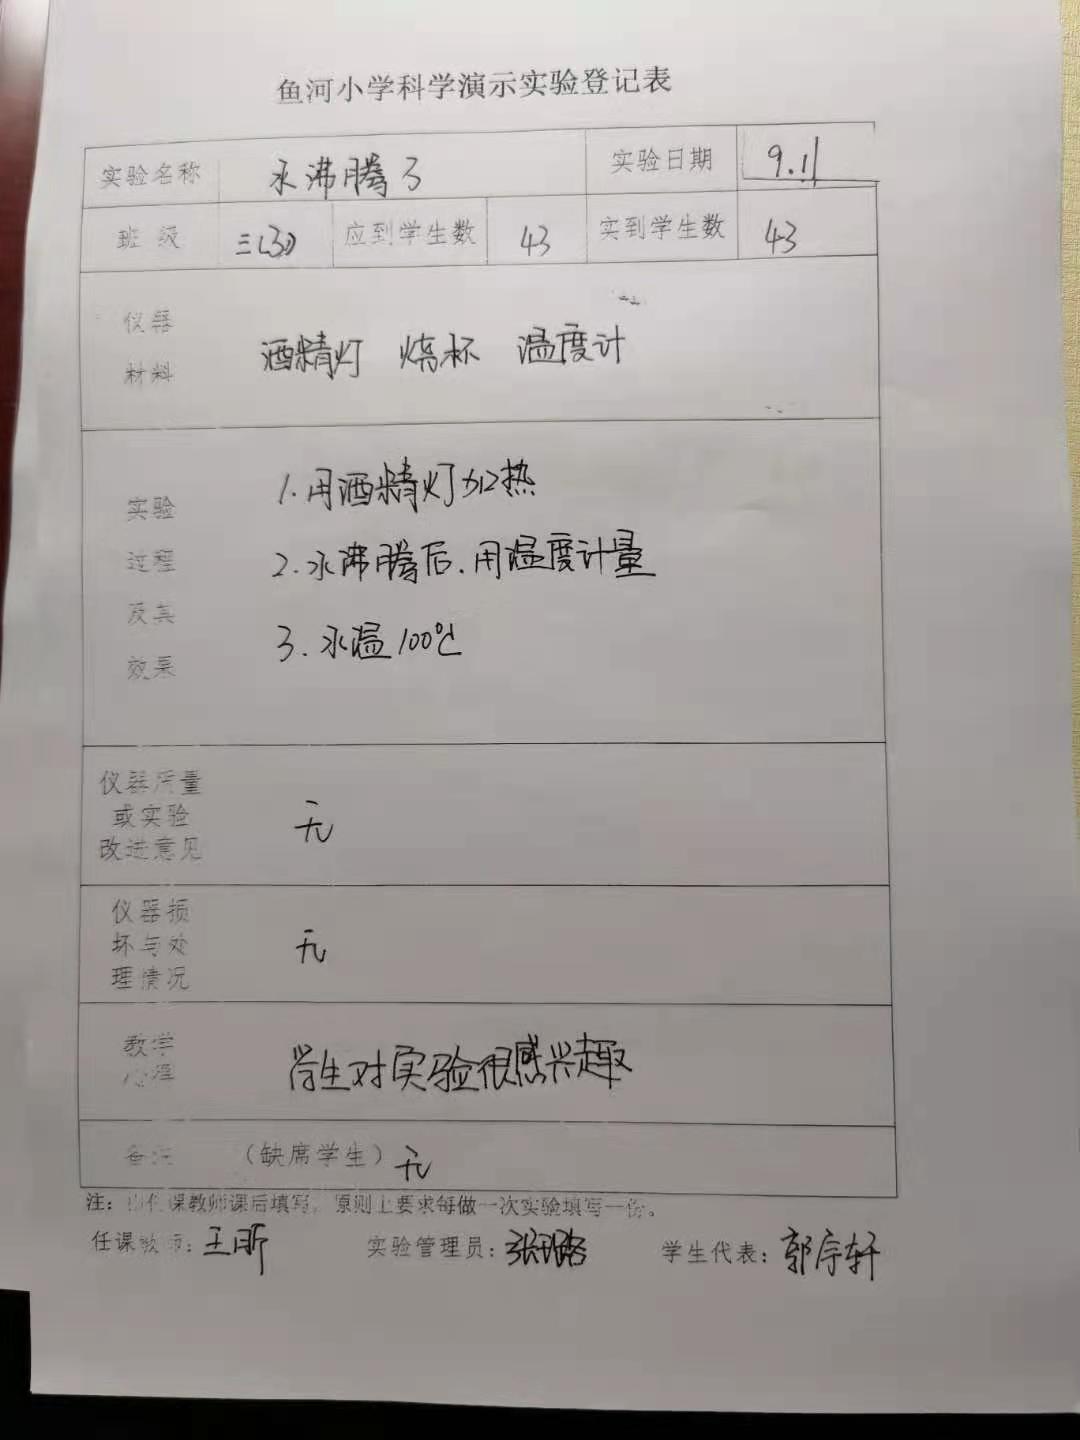 鱼河小学科学演示实验登记表
实验名称 水沸腾了 实验日期 9.11
班级 三(3) 应到学生数 43 实到学生数 43
仪器
材料
酒精灯 烧杯 温度计
实验
过程
及其
效果
1.用酒精灯加热
2.水沸腾后.用温度计量
3.水温100℃
仪器质量
或实验
改进意见
无
仪器损
坏与处
理情况
无
教学
心得
学生对实验很感兴趣
备注 （缺席学生）无
注：由任课教师课后填写，原则上要求每做一次实验填写一份。
任课教师：王昕 实验管理员：张璐 学生代表：郭宗轩